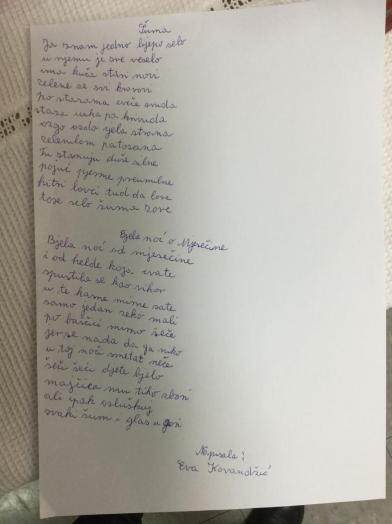 Šuma
Ja znam jedno ljepo selo
u njemu je sve veselo
ima kuća stari novi
zelene se svi krovovi
po starama cvěće svuda
staza uska pa krivuda
ozgo ozdo yela strana
zelenilom patosana
Tu stanuju duše silne
pojuć pjesme preumilne
hitri lovci tud da love
to se selo šuma zove
Bjela noć o Mjesečine
Bjela noć od mjesečine
i od helde koja cvate
spustila se kao vihor
u te kasne mirne sate
samo jedan zeko mali
po bašćici mimo šeče
jer se nada da ga niko
u toj noći smetat neče
šeči šeči djete bjelo
majčica mu tiho zboni
ali ipak osluškuj
svaki šum - glas u goni
Napisala:
Eva Kovandžić